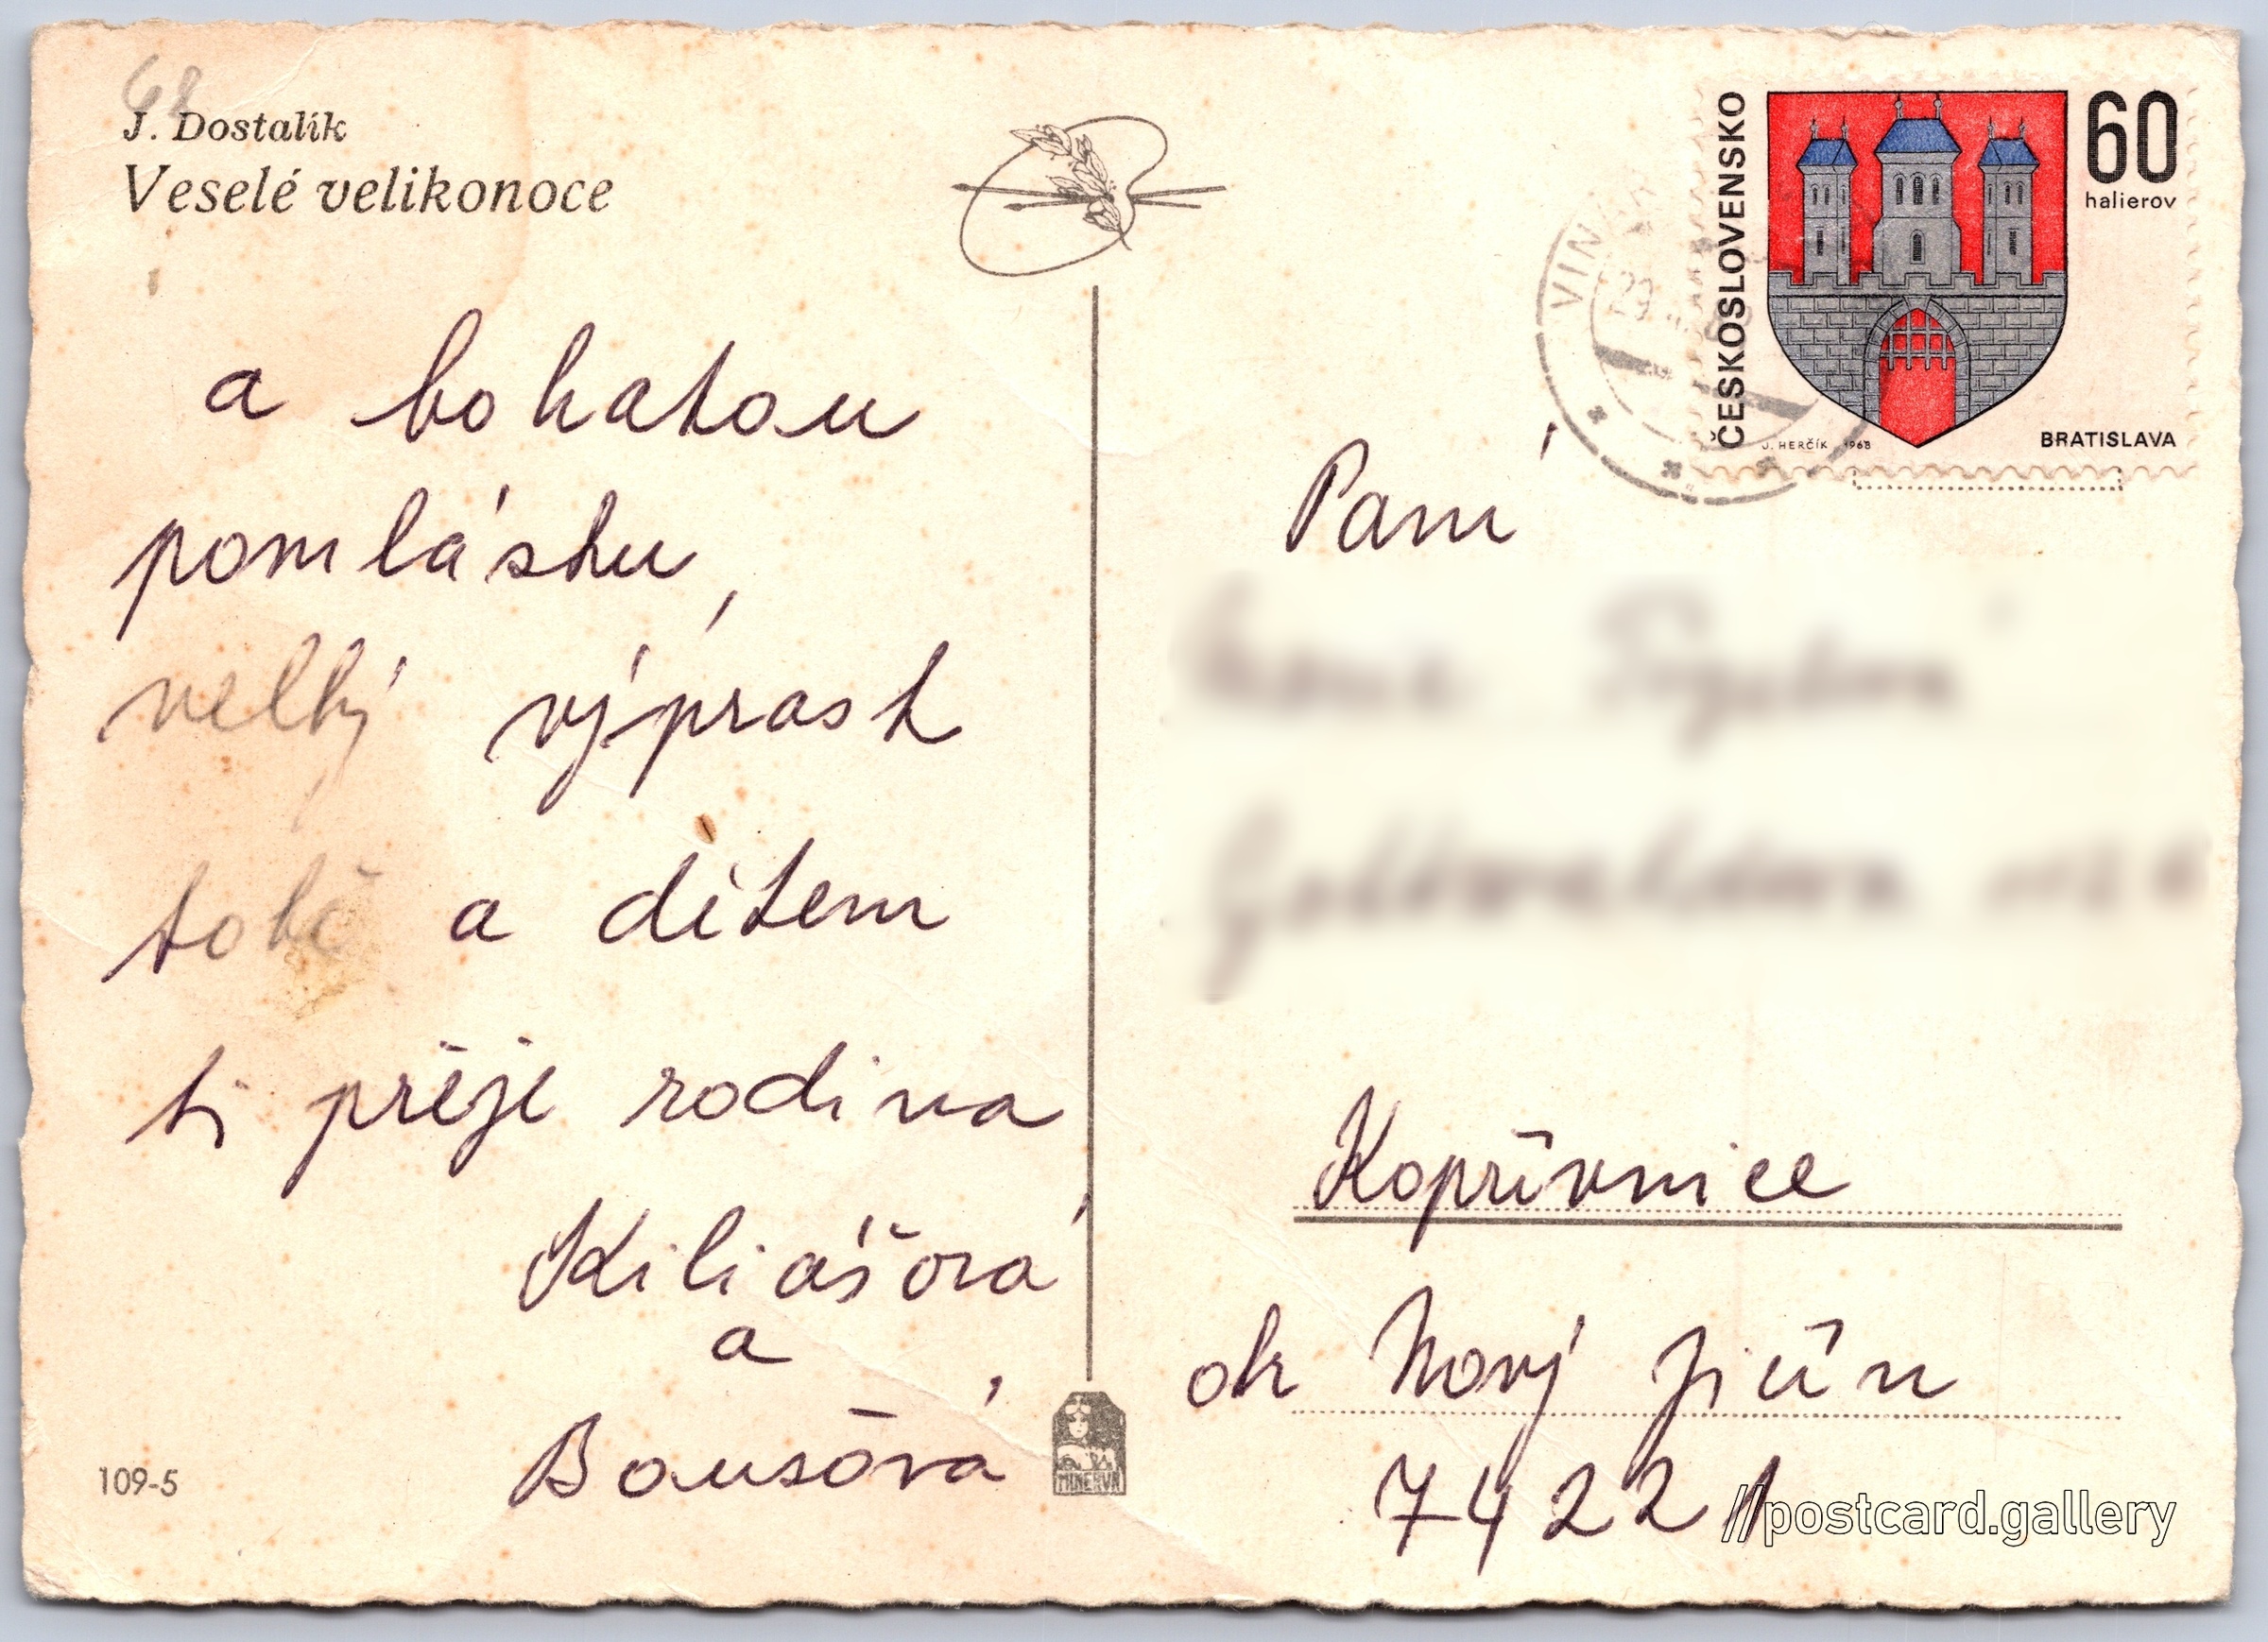 68
J. Dostalík
Veselé velikonoce
a bohatou
pomlásku,
velký výprask
tobě a dětem
ti přeje rodina
Kiliášová
a
Boušová
109-5
MINERVA
ČESKOSLOVENSKO
60
halierov
J. HERČÍK 1968
BRATISLAVA
Paní
Kopřivnice
ok Nový Jičín
74221
//postcard.gallery